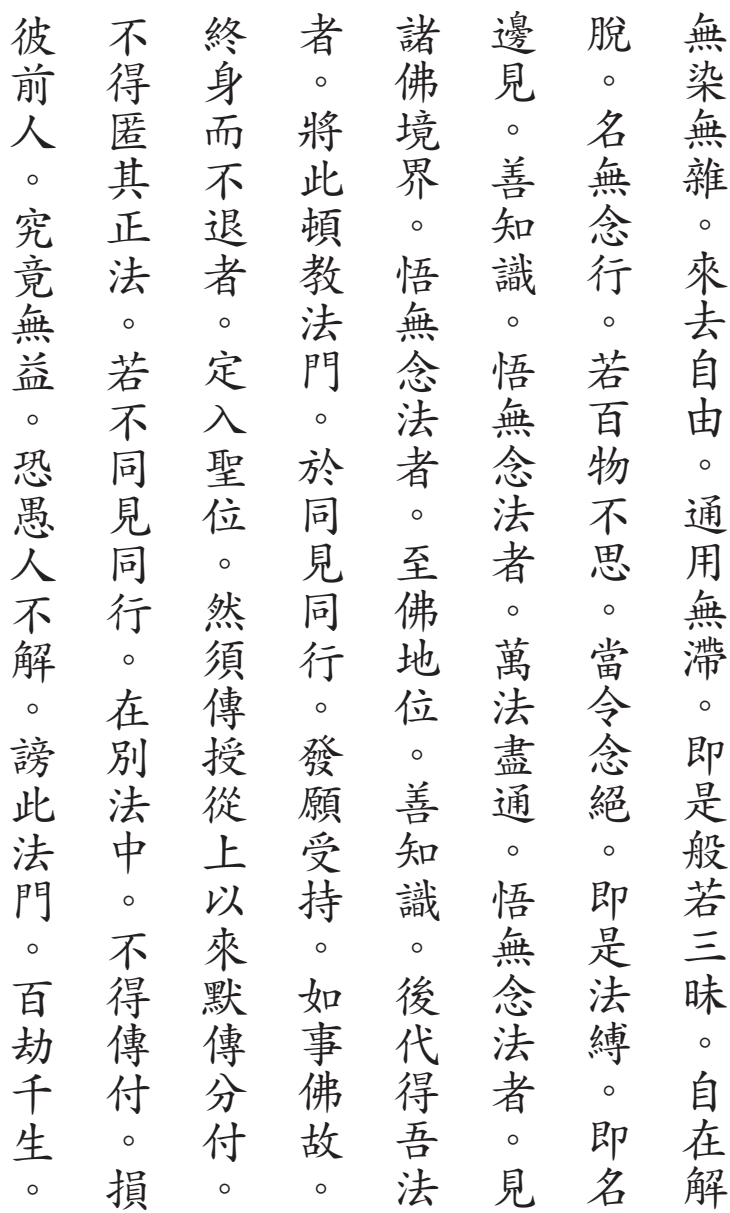 無染無雜。來去自由。通用無滯。即是般若三昧。自在解
脫。名無念行。若百物不思。當令念絕。即是法縛。即名
邊見。善知識。悟無念法者。萬法盡通。悟無念法者。見
諸佛境界。悟無念法者。至佛地位。善知識。後代得吾法
者。將此頓教法門。於同見同行。發願受持。如事佛故。
終身而不退者。定入聖位。然須傳授從上以來默傳分付。
不得匿其正法。若不同見同行。在別法中。不得傳付。損
彼前人。究竟無益。恐愚人不解。謗此法門。百劫千生。